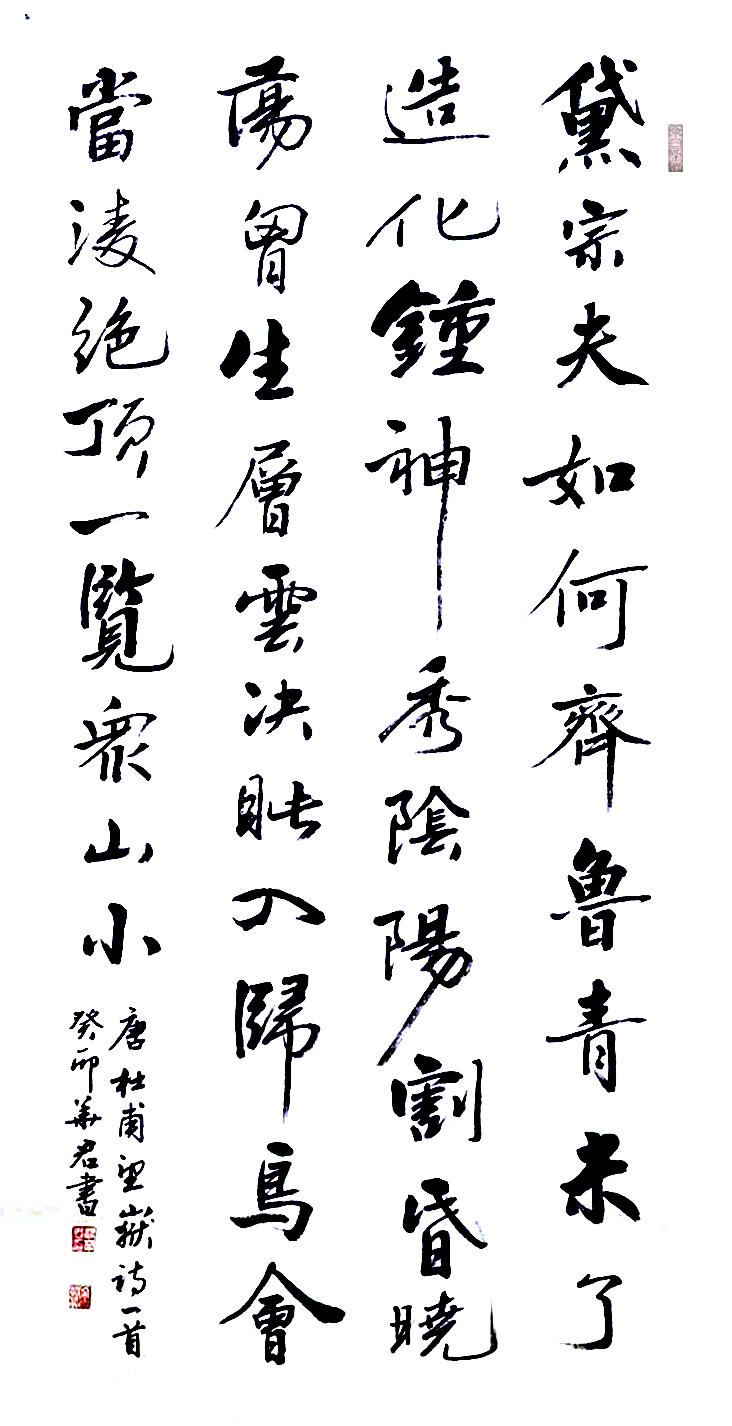 黛宗夫如何齊魯青未了
造化鍾神秀陰陽割昏曉
蕩胷生層雲决眦入歸鳥會
當淩絶頂一覽衆山小
唐杜甫望嶽詩一首
癸卯華君書